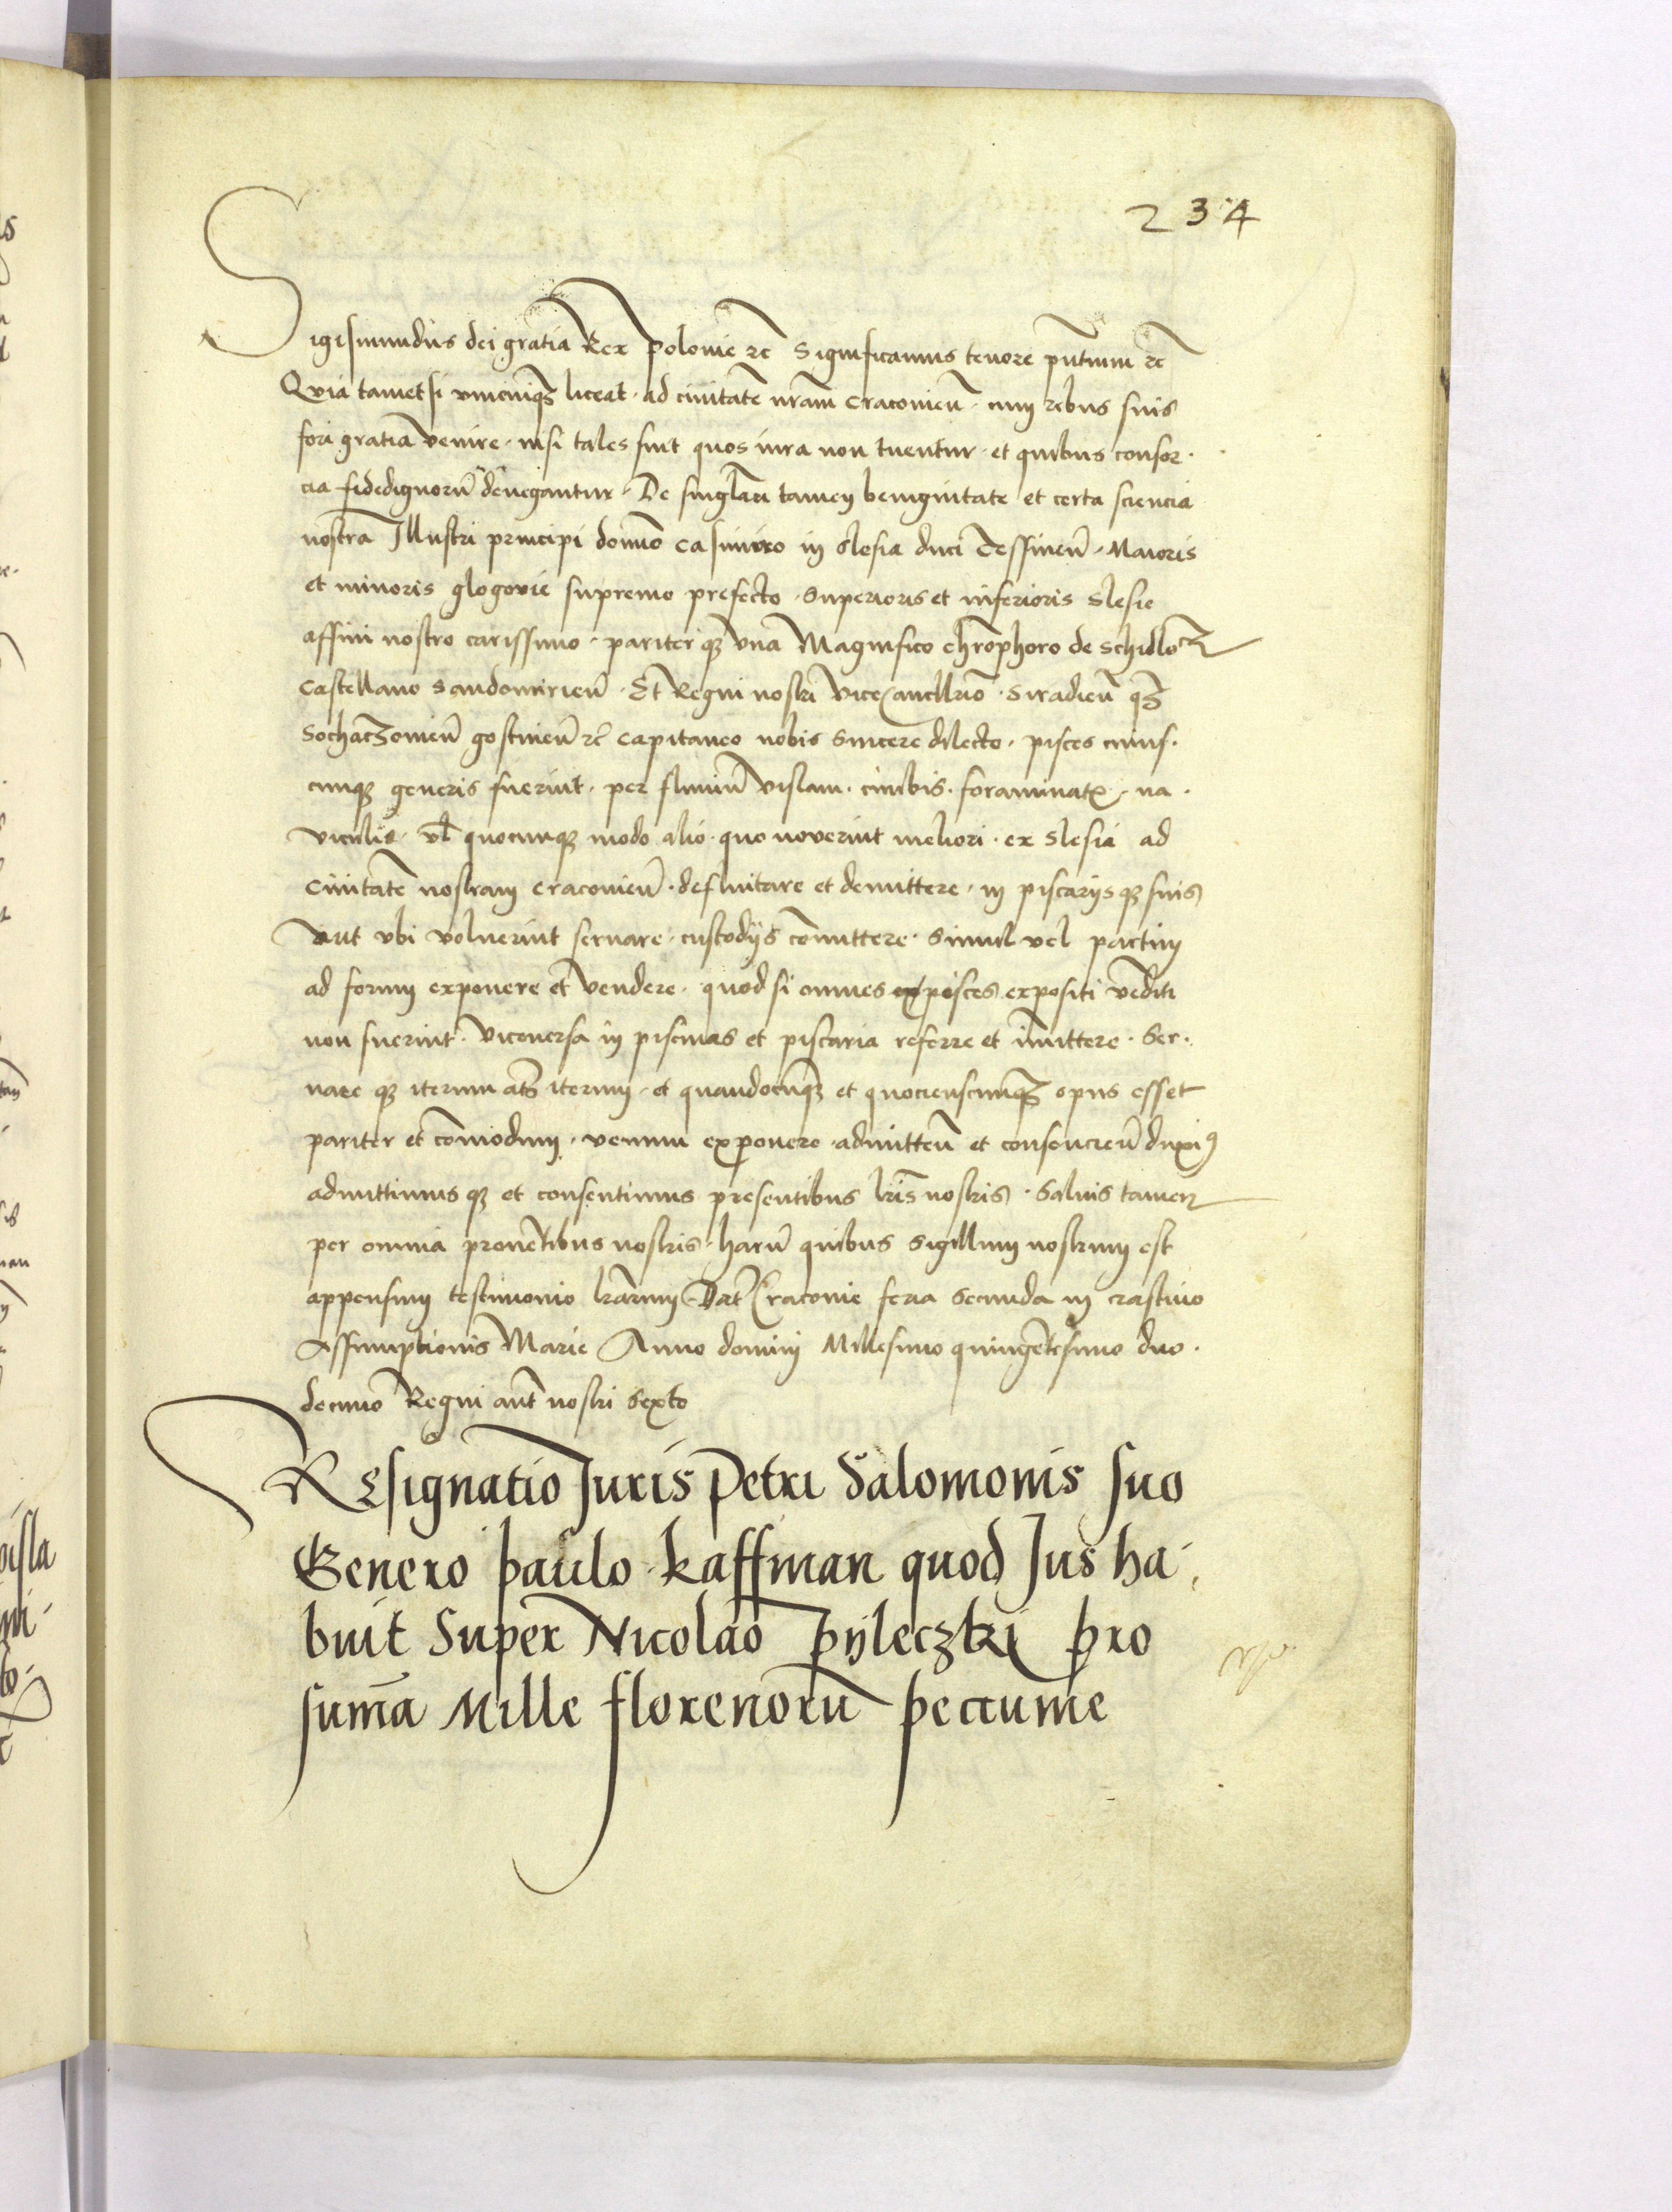 234
Sigismundus dei gratia Rex Polonie rc̄ Significamus tenore pn̄tium rc̄
Quia tametsi unicuiqꝫ liceat · ad ciuitatē nr̄am Cracouien̄ · cum rebus suis
fori gratia venire · nisi tales sint quos iura non tuentur · et quibus consor ·
cia fidedignorū denegantur · De singlari tamen benignitate et certa sciencia
nostra Illustri principi domīo Casimiro in Slesia duci Tessinen̄ · Maioris
et minoris glogouie supremo prefecto · Superioris et inferioris Slesie
affini nostro carissimo · pariterqꝫ una Magnifico chr̄ophoro de Schidlo
Castellano Sandomirien̄ · Et Regni nostri Vicecancllrīo · Siradien̄ qꝫ
Sochaczouien̄ gostinen̄ rc̄ Capitaneo nobis Sincere dilecto · pisces cuius ·
cunqꝫ generis fuerint · per fluuiū Vislam · cimbis · foraminatꝭ · na ·
viculis · vl̄ quocunqꝫ modo alio · quo noverint meliori · ex Slesia ad
Ciuitatē nostram Cracouien̄ · defluitare et demittere · in piscariisqꝫ suis
aut ubi voluerint seruare · custodijs cōmittere · Simul vel partim
ad forum exponere et vendere · quod si omnes pisces expositi vēditi
non fuerint · viceuersa in piscinas et piscaria referre et īmittere · Ser ·
uare qꝫ iterum atꝫ iterum · et quandocūqꝫ et quocienscunqꝫ opus esset
pariter et cōmodum · venum exponere · admitten̄ et consencien̄ duxiꝰ
admittimus qꝫ et consentimus presentibus lr̄is nostris · Saluis tamen
per omnia prouētibus nostris · harū quibus sigillum nostrum est
appensum testimonio lr̄arum · Dat̄ Cracouie feria Secunda in crastino
Assumptionis Marie Anno domini Millesimo quingētesimo duo ·
decimo Regni aut̄ nostri Sexto
REsignatio Juris Petri Salomonis suo
Genero paulo kaffman quod Jus ha ·
buit Super Nicolao Pijleczki pro
sum̄a Mille florenorū peccunie